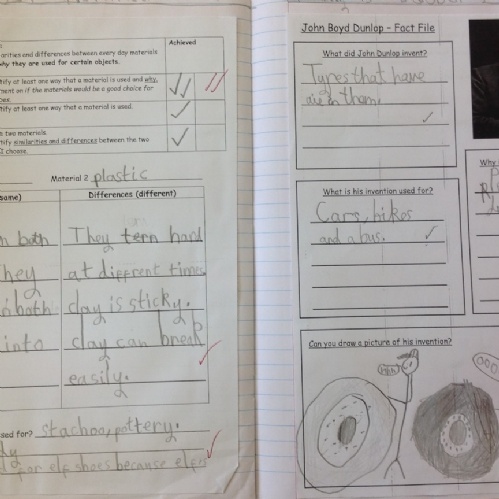 arities and differences between every day materials
why they are used for certain objects.
Achieved
tify at least one way that a material is used and why.
ment on if the materials would be a good choice for
oes.
tify at least one way that a material is used.
s two materials.
tify similarities and differences between the two
I choose.
Material 2 plastic
same)
Differences (different)
n both
They tern hard
hey
at different times
n both
clay is sticky.
into
clay can break
easily.
sed for? stachoo, pottery.
for elf shoes because elfs
John Boyd Dunlop - Fact File
What did John Dunlop invent?
Tyres that have
air in them.
What is his invention used for?
Cars, bikes
and a bus.
Why
Can you draw a picture of his invention?